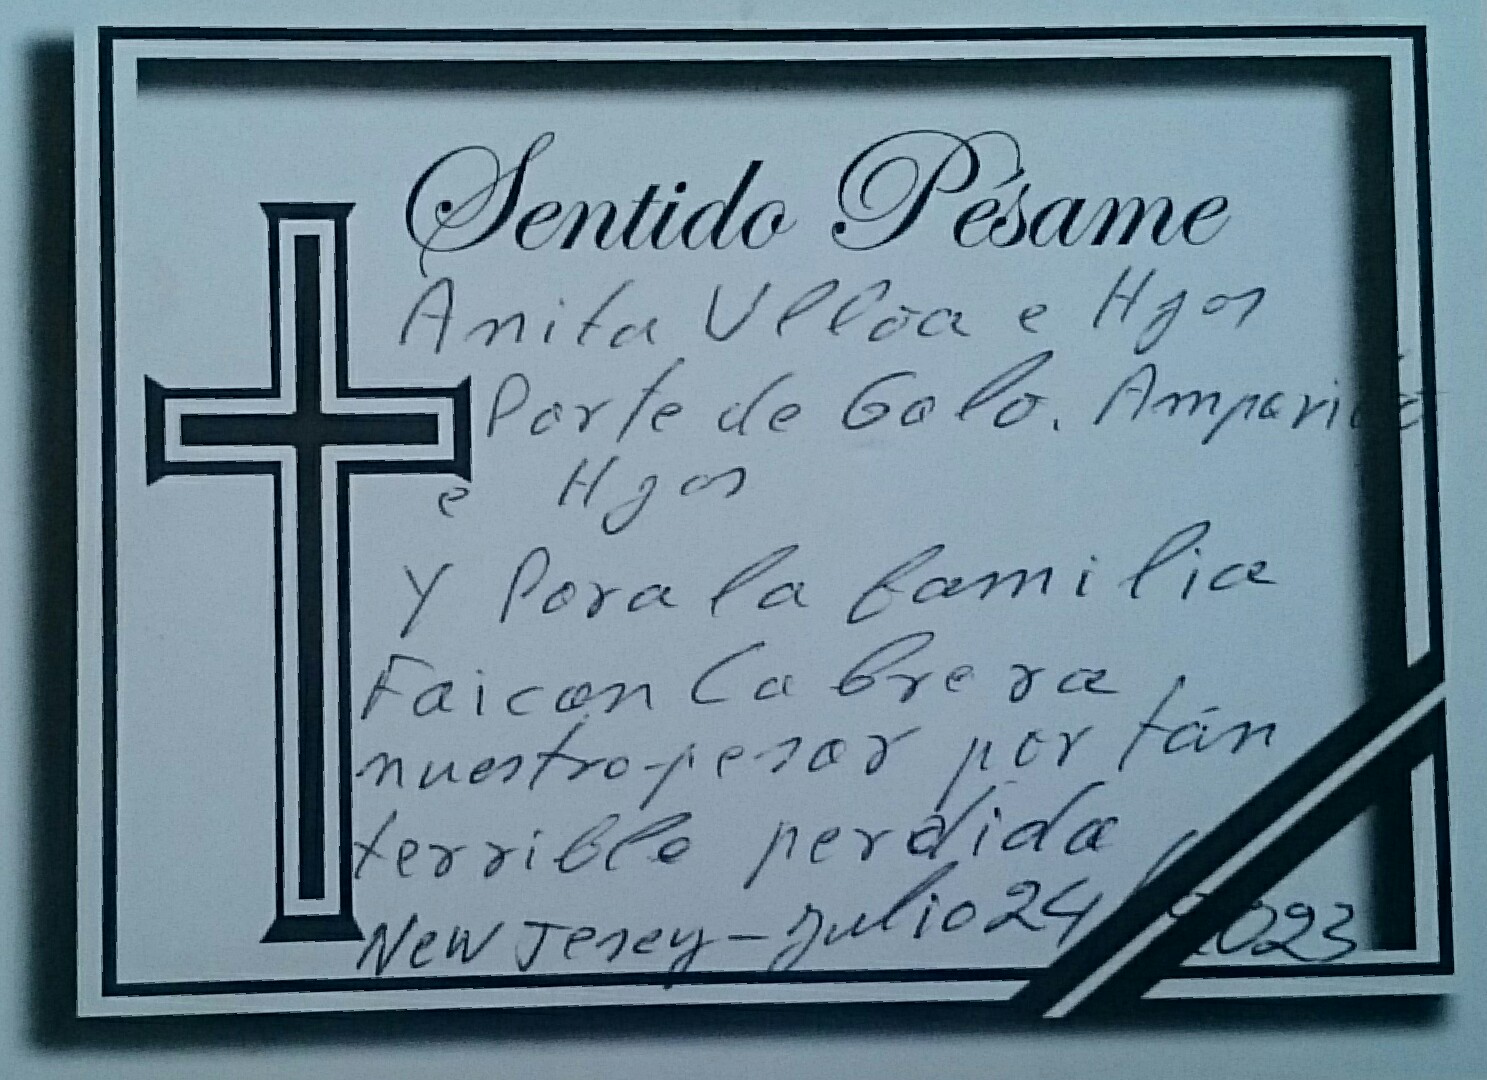 Sentido Pésame
Anita Ulloa e Hjos
Parte de Galo. Amparito
e Hjos
y Para la familia
Faican Cabrera
nuestro pesar por tán
terrible perdida
New Jersey - julio 24 2023